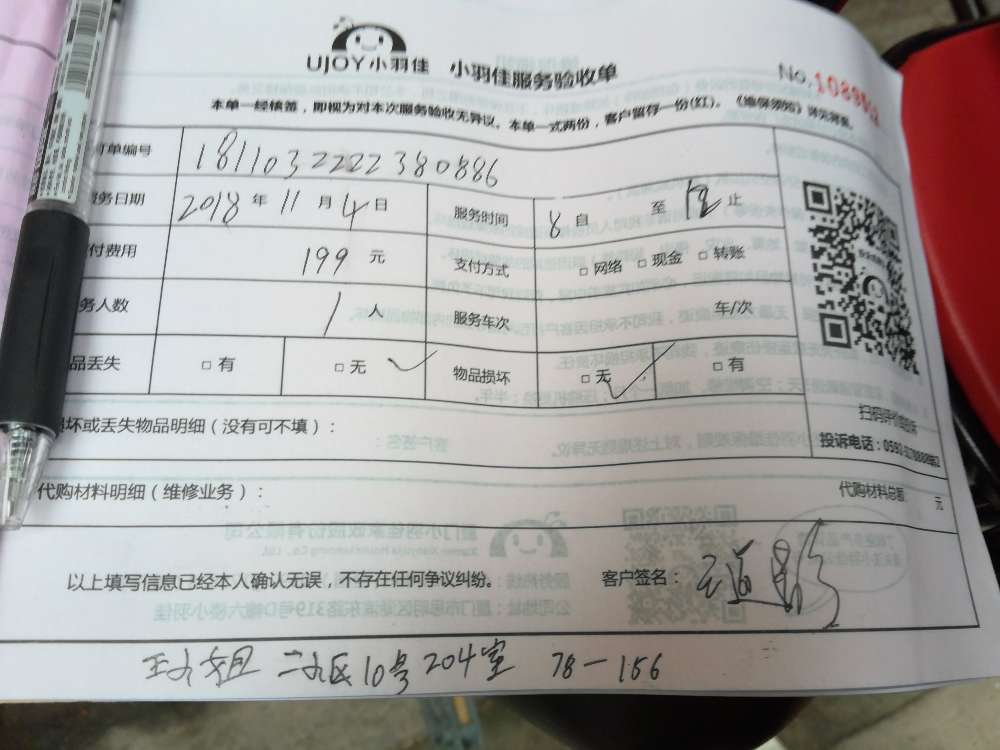 UJOY小羽佳 小羽佳服务验收单
No.
本单一经情签，即视为对本次服务验收无异议。本单一式两份，客户留存一份(红)。《维保须知》详见背面。
订单编号 1811032222380886
服务日期 2018 年 11 月 4 日 服务时间 8 自 至 12 止
付费用 199 元 支付方式 □网络 □现金 □转账
务人数 1 人 服务车次 车/次
品丢失 □有 □无 ✓ 物品损坏 □无 ✓ □有
损坏或丢失物品明细（没有可不填）：
投诉电话：0592-
代购材料明细（维修业务）： 代购材料总额 元
以上填写信息已经本人确认无误，不存在任何争议纠纷。 客户签名：
10号204室 78-156